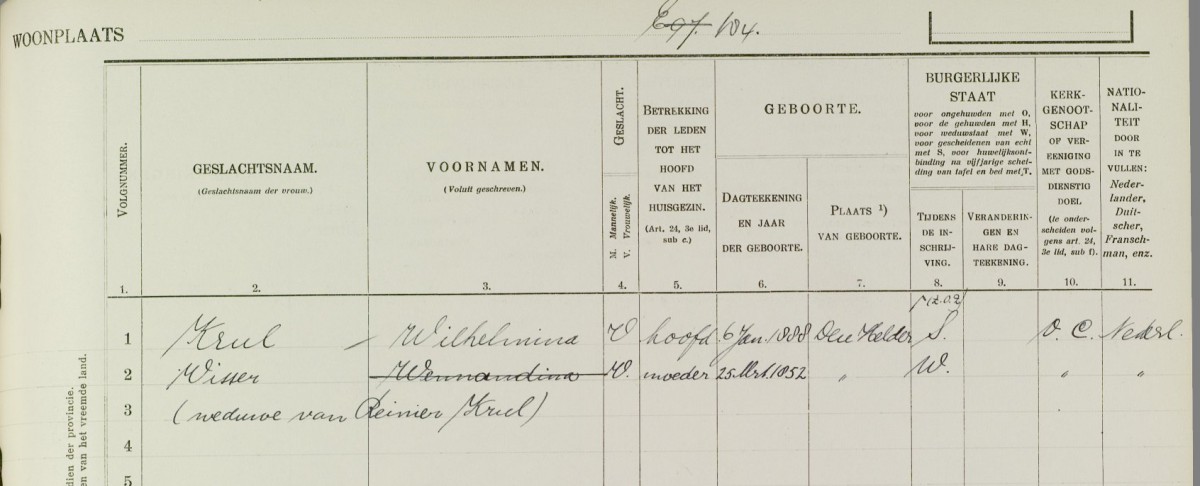 WOONPLAATS E97. 104.
VOLGNUMMER.
GESLACHTSNAAM.
(Geslachtsnaam der vrouw.)
VOORNAMEN.
(Voluit geschreven.)
GESLACHT.
M. Mannelijk.
V. Vrouwelijk.
BETREKKING
DER LEDEN
TOT HET
HOOFD
VAN HET
HUISGEZIN.
(Art. 24, 3e lid,
sub c.)
GEBOORTE.
DAGTEEKENING
EN JAAR
DER GEBOORTE.
PLAATS ¹)
VAN GEBOORTE.
BURGERLIJKE
STAAT
voor ongehuwden met O,
voor de gehuwden met H,
voor weduwstaat met W,
voor gescheidenen van echt
met S, voor huwelijksont-
binding na vijfjarige schei-
ding van tafel en bed met T.
TIJDENS
DE IN-
SCHRIJ-
VING.
VERANDERIN-
GEN EN
HARE DAG-
TEEKENING.
KERK-
GENOOT-
SCHAP
OF VER-
EENIGING
MET GODS-
DIENSTIG
DOEL
(te onder-
scheiden vol-
gens art. 24,
3e lid, sub f).
NATIO-
NALI-
TEIT
DOOR
IN TE
VULLEN:
Neder-
lander,
Duit-
scher,
Fransch-
man, enz.
1. 2. 3. 4. 5. 6. 7. 8. 9. 10. 11.
(z.o.z)
1 Krul Wilhelmina V hoofd 6 Jan. 1888 Den Helder S. O. C. Nederl.
2 Visser V. moeder 25 Mrt. 1852 „ W. „ „
3 (weduwe van Reinier Krul)
4
5
dien der provincie.
en van het vreemde land.